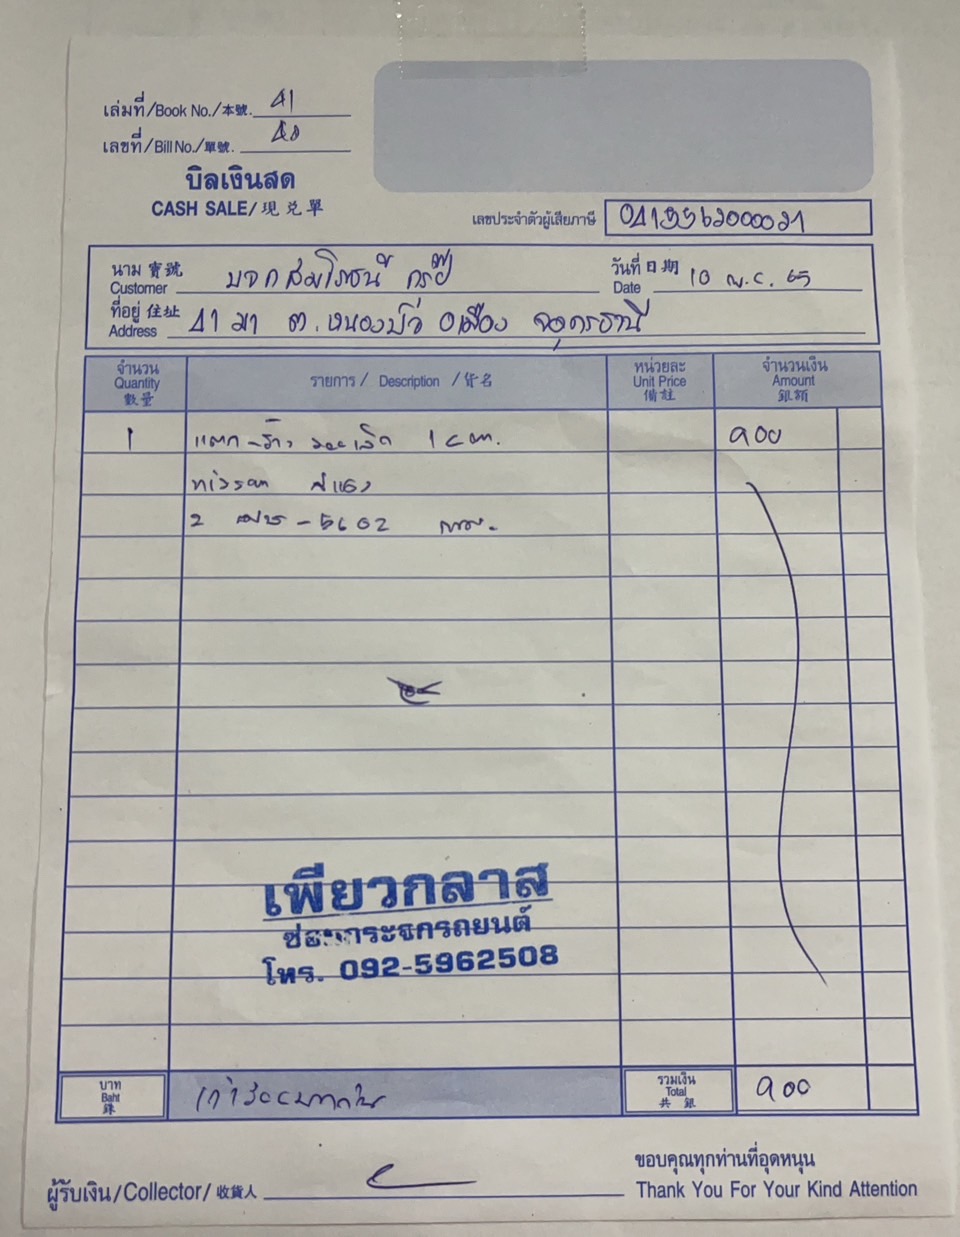 เล่มที่/Book No./本號. 41
เลขที่/Bill No./單號. 40
บิลเงินสด
CASH SALE/現兑單
เลขประจำตัวผู้เสียภาษี 0415562000021
นาม 寶號 Customer บจก สมโภชน์ กรุ๊ป
วันที่ 日期 Date 10 พ.ค. 65
ที่อยู่ 住址 Address 41 ม1 ต.หนองบัว อเมือง จอุดรธานี
จำนวน Quantity 數量
รายการ / Description / 貨名
หน่วยละ Unit Price 價註
จำนวนเงิน Amount 銀額
1 แตก-ร้าว 1 cm. 900
nissan สีแดง
2 - 5602 กทม.
เพียวกลาส
ซ่อมกระจกรถยนต์
โทร. 092-5962508
บาท Baht 銖 เก้าร้อยบาทถ้วน
รวมเงิน Total 共銀 900
ขอบคุณทุกท่านที่อุดหนุน
ผู้รับเงิน/Collector/收貨人
Thank You For Your Kind Attention